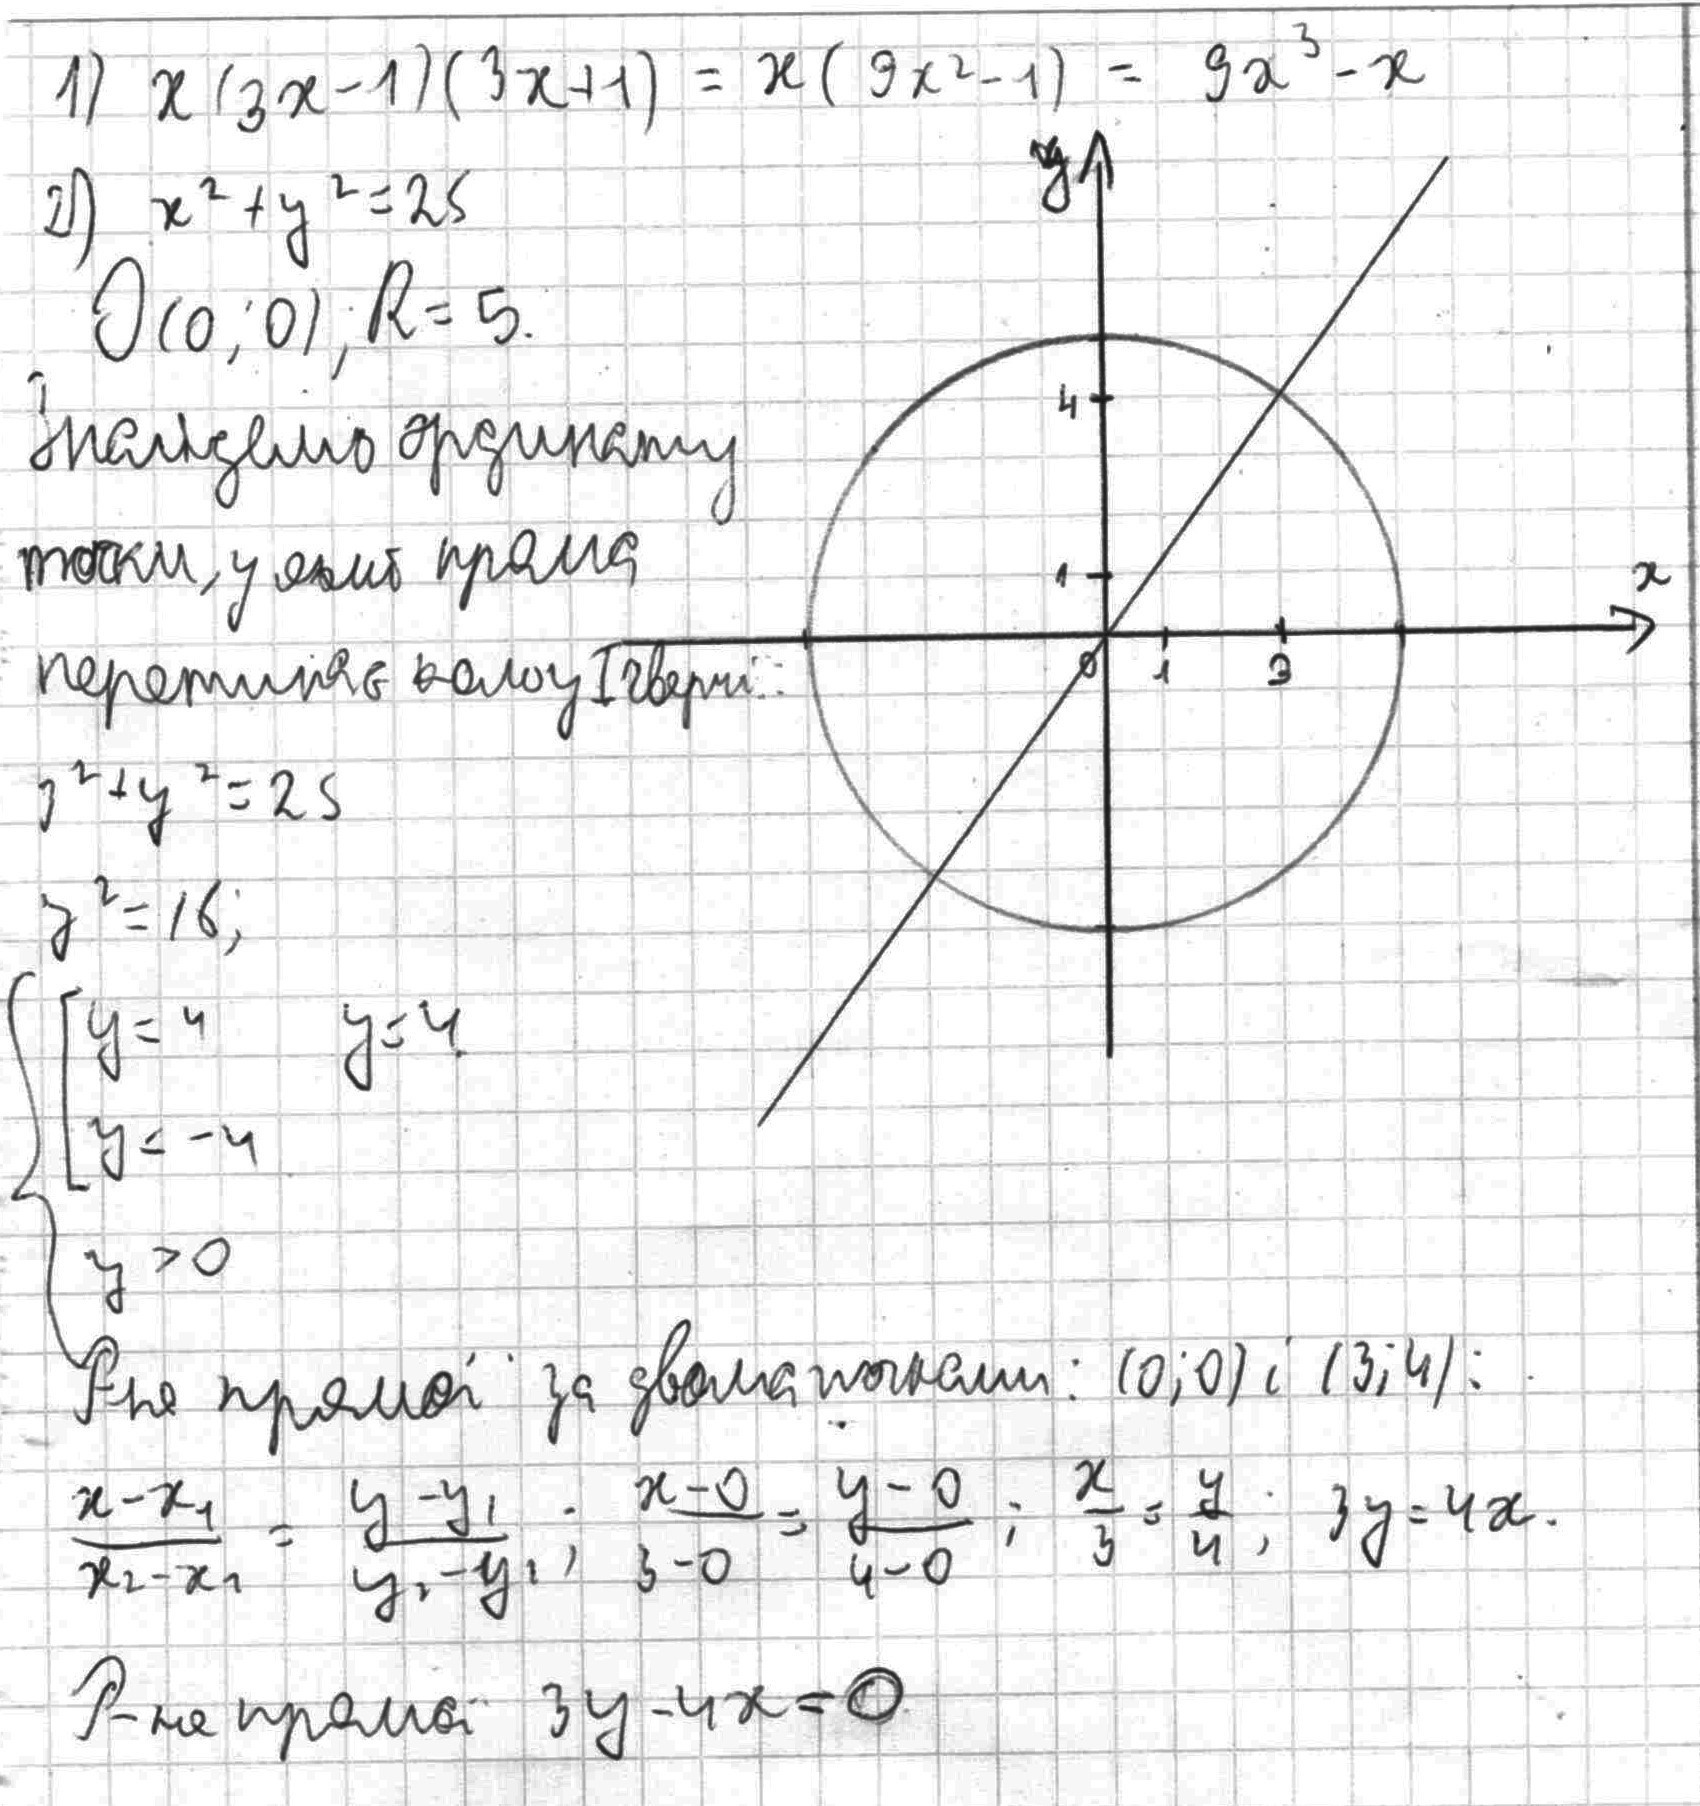 1) x(3x-1)(3x+1) = x(9x²-1) = 9x³-x
2) x²+y²=25
O(0;0), R=5.
Знайдемо ординату
точки, у якій пряма
перетинає коло у I чверті:
3²+y²=25
y²=16;
y=4 y=4.
y=-4
y>0
Р-ня прямої за двома точками: (0;0) і (3;4):
(x-x₁)/(x₂-x₁) = (y-y₁)/(y₂-y₁); (x-0)/(3-0) = (y-0)/(4-0); x/3 = y/4; 3y=4x.
Р-ня прямої 3y-4x=0
y
4
1
x
0 1 3